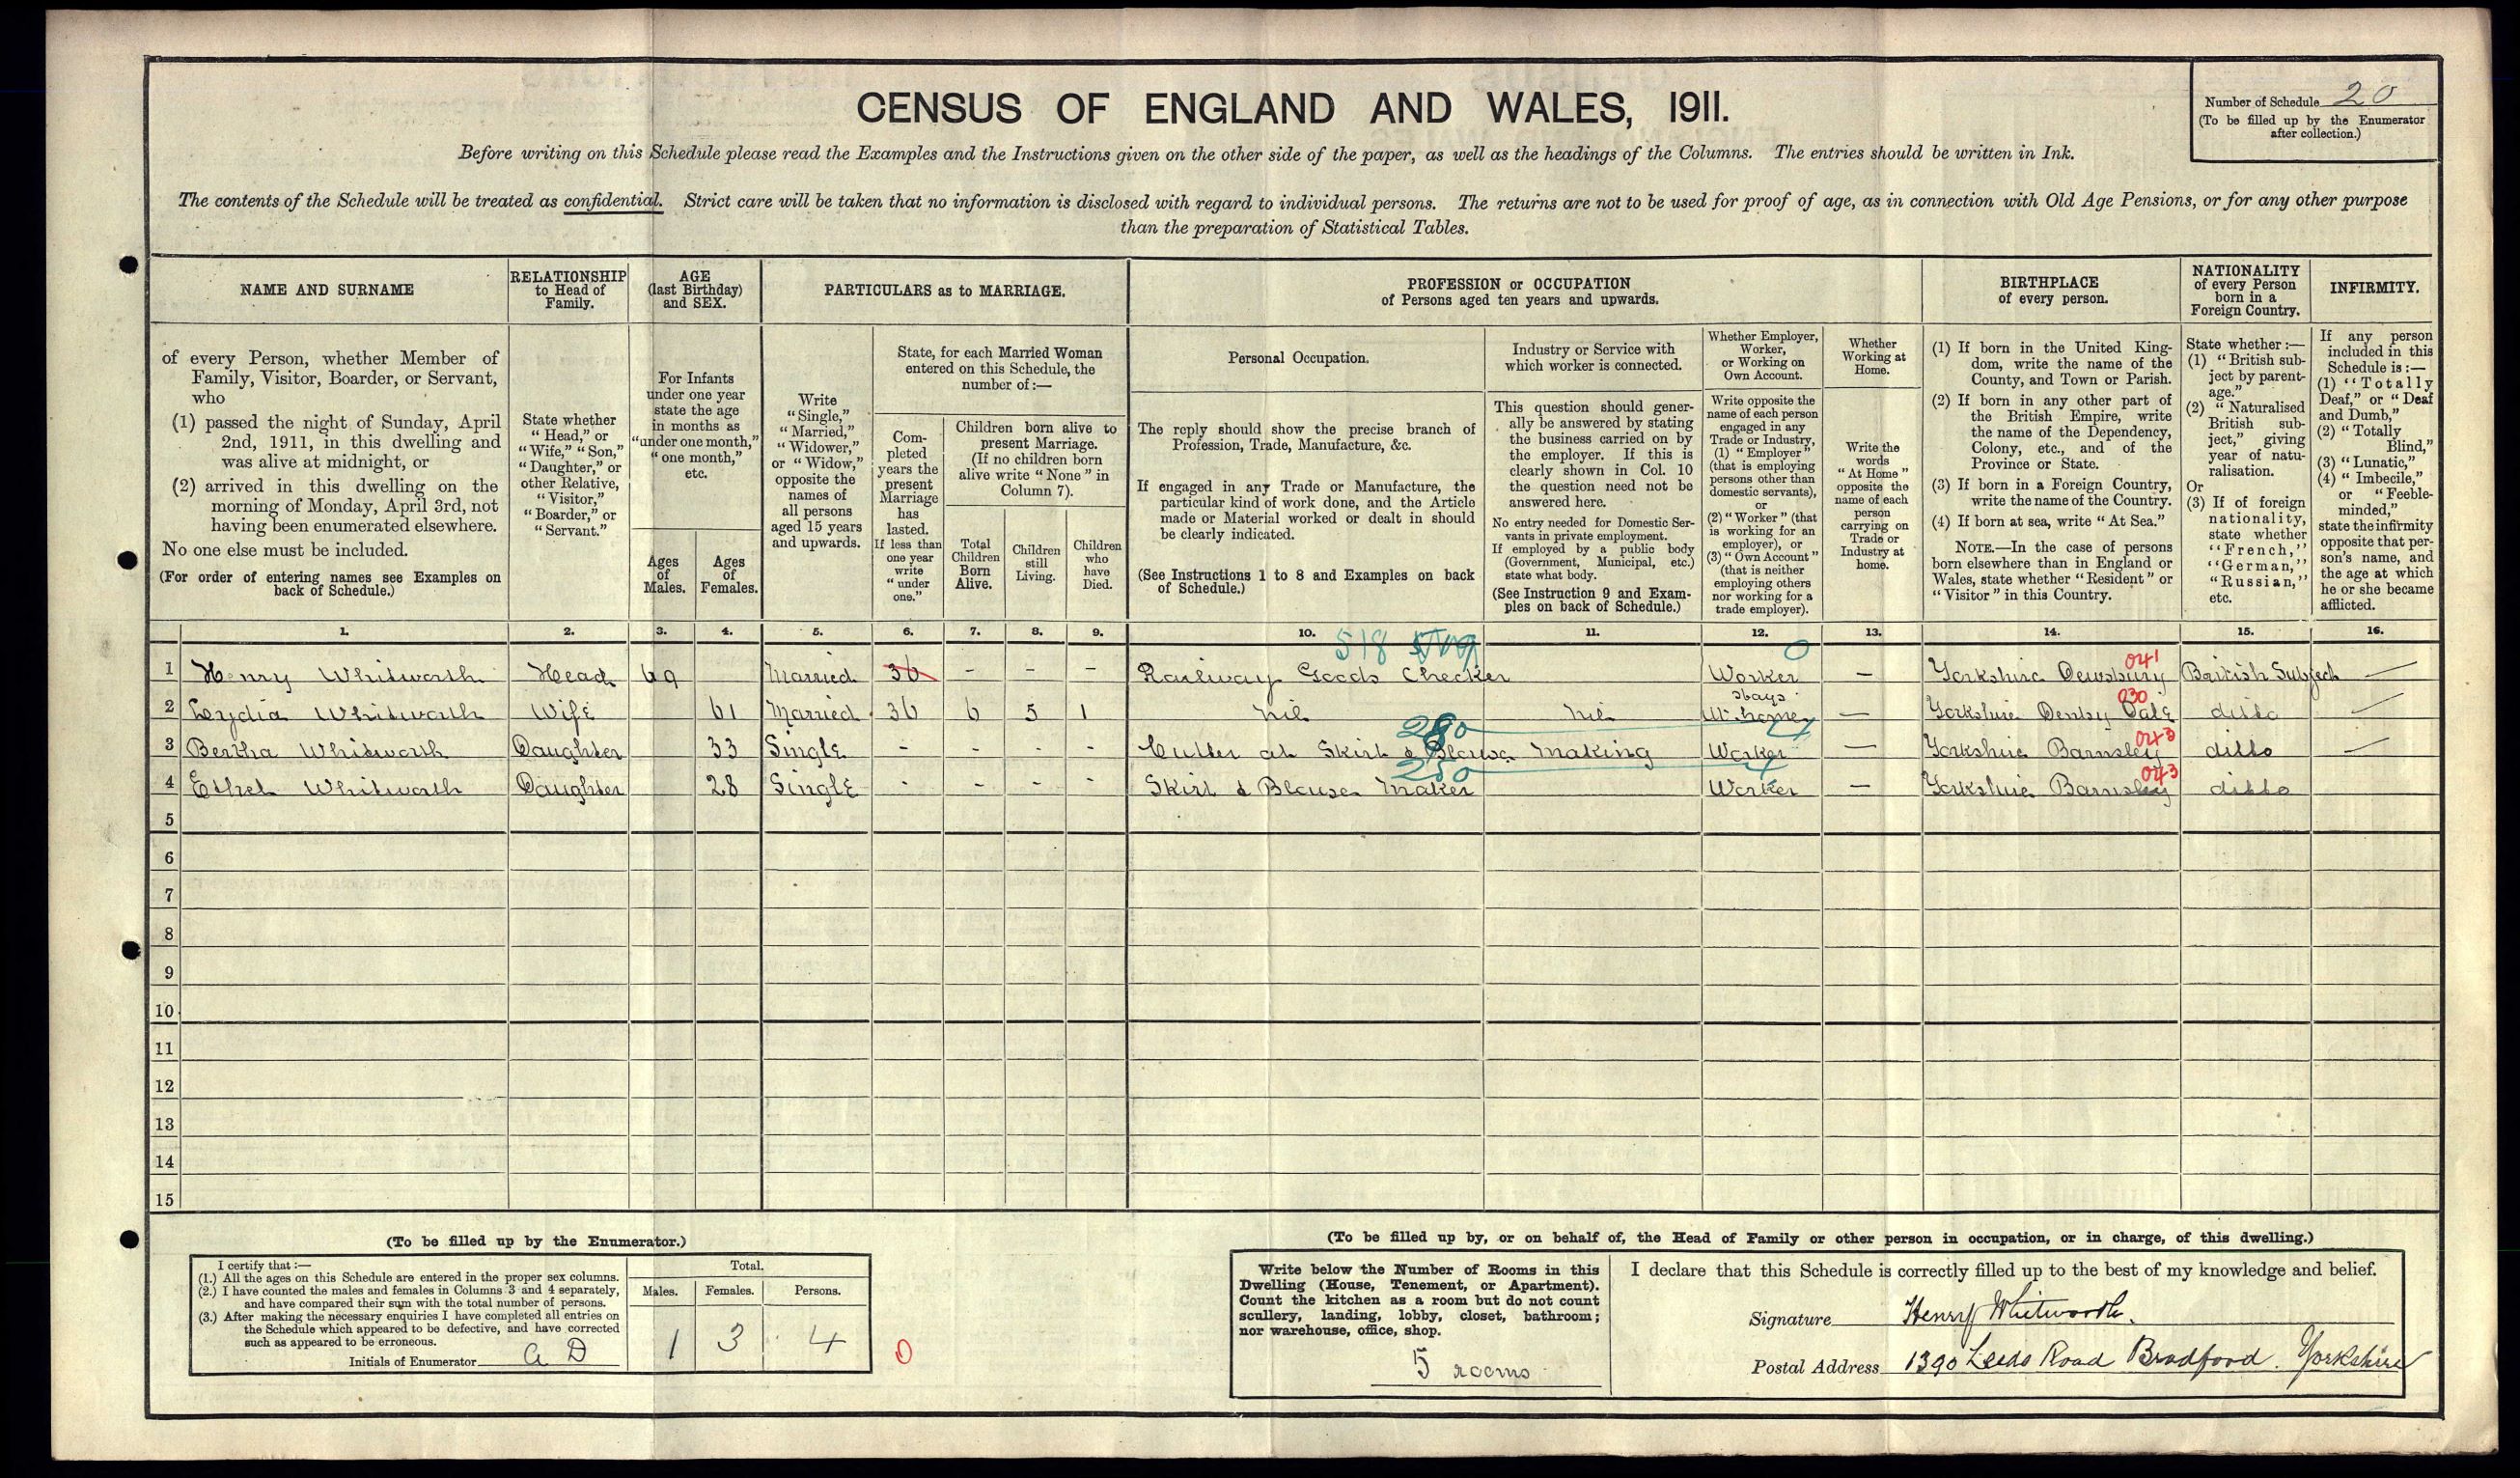 CENSUS OF ENGLAND AND WALES, 1911.
Number of Schedule 20
(To be filled up by the Enumerator
after collection.)
Before writing on this Schedule please read the Examples and the Instructions given on the other side of the paper, as well as the headings of the Columns. The entries should be written in Ink.
The contents of the Schedule will be treated as confidential. Strict care will be taken that no information is disclosed with regard to individual persons. The returns are not to be used for proof of age, as in connection with Old Age Pensions, or for any other purpose
than the preparation of Statistical Tables.
NAME AND SURNAME
RELATIONSHIP
to Head of
Family.
AGE
(last Birthday)
and SEX.
PARTICULARS as to MARRIAGE.
PROFESSION or OCCUPATION
of Persons aged ten years and upwards.
BIRTHPLACE
of every person.
NATIONALITY
of every Person
born in a
Foreign Country.
INFIRMITY.
of every Person, whether Member of
Family, Visitor, Boarder, or Servant,
who
(1) passed the night of Sunday, April
2nd, 1911, in this dwelling and
was alive at midnight, or
(2) arrived in this dwelling on the
morning of Monday, April 3rd, not
having been enumerated elsewhere.
No one else must be included.
(For order of entering names see Examples on
back of Schedule.)
State whether
"Head," or
"Wife," "Son,"
"Daughter," or
other Relative,
"Visitor,"
"Boarder," or
"Servant."
For Infants
under one year
state the age
in months as
"under one month,"
"one month,"
etc.
Ages
of
Males.
Ages
of
Females.
Write
"Single,"
"Married,"
"Widower,"
or "Widow,"
opposite the
names of
all persons
aged 15 years
and upwards.
State, for each Married Woman
entered on this Schedule, the
number of:—
Com-
pleted
years the
present
Marriage
has
lasted.
If less than
one year
write
"under
one."
Children born alive to
present Marriage.
(If no children born
alive write "None" in
Column 7).
Total
Children
Born
Alive.
Children
still
Living.
Children
who
have
Died.
Personal Occupation.
The reply should show the precise branch of
Profession, Trade, Manufacture, &c.
If engaged in any Trade or Manufacture, the
particular kind of work done, and the Article
made or Material worked or dealt in should
be clearly indicated.
(See Instructions 1 to 8 and Examples on back
of Schedule.)
Industry or Service with
which worker is connected.
This question should gener-
ally be answered by stating
the business carried on by
the employer. If this is
clearly shown in Col. 10
the question need not be
answered here.
No entry needed for Domestic Ser-
vants in private employment.
If employed by a public body
(Government, Municipal, etc.)
state what body.
(See Instruction 9 and Exam-
ples on back of Schedule.)
Whether Employer,
Worker,
or Working on
Own Account.
Write opposite the
name of each person
engaged in any
Trade or Industry,
(1) "Employer"
(that is employing
persons other than
domestic servants),
or
(2) "Worker" (that
is working for an
employer), or
(3) "Own Account"
(that is neither
employing others
nor working for a
trade employer).
Whether
Working at
Home.
Write the
words
"At Home"
opposite the
name of each
person
carrying on
Trade or
Industry at
home.
(1) If born in the United King-
dom, write the name of the
County, and Town or Parish.
(2) If born in any other part of
the British Empire, write
the name of the Dependency,
Colony, etc., and of the
Province or State.
(3) If born in a Foreign Country,
write the name of the Country.
(4) If born at sea, write "At Sea."
NOTE.—In the case of persons
born elsewhere than in England or
Wales, state whether "Resident" or
"Visitor" in this Country.
State whether:—
(1) "British sub-
ject by parent-
age."
(2) "Naturalised
British sub-
ject," giving
year of natu-
ralisation.
Or
(3) If of foreign
nationality,
state whether
"French,"
"German,"
"Russian,"
etc.
If any person
included in this
Schedule is:—
(1) "Totally
Deaf," or "Deaf
and Dumb,"
(2) "Totally
Blind,"
(3) "Lunatic,"
(4) "Imbecile,"
or "Feeble-
minded,"
state the infirmity
opposite that per-
son's name, and
the age at which
he or she became
afflicted.
1. 2. 3. 4. 5. 6. 7. 8. 9. 10. 11. 12. 13. 14. 15. 16.
518 0
1 Henry Whitworth Head 69 Married 36 - - - Railway Goods Checker Worker — Yorkshire Dewsbury 041 British Subject —
2 Lydia Whitworth Wife 61 Married 36 6 5 1 nil nil stays at home — Yorkshire Denby Dale 030 ditto —
280
3 Bertha Whitworth Daughter 33 Single - - - - Cutter at Skirt & Blouse Making Worker — Yorkshire Barnsley 043 ditto —
280
4 Ethel Whitworth Daughter 28 Single - - - - Skirt & Blouse Maker Worker — Yorkshire Barnsley 043 ditto
5
6
7
8
9
10
11
12
13
14
15
(To be filled up by the Enumerator.)
I certify that:—
(1.) All the ages on this Schedule are entered in the proper sex columns.
(2.) I have counted the males and females in Columns 3 and 4 separately,
and have compared their sum with the total number of persons.
(3.) After making the necessary enquiries I have completed all entries on
the Schedule which appeared to be defective, and have corrected
such as appeared to be erroneous.
Initials of Enumerator A D
Total.
Males. Females. Persons.
1 3 4 0
(To be filled up by, or on behalf of, the Head of Family or other person in occupation, or in charge, of this dwelling.)
Write below the Number of Rooms in this
Dwelling (House, Tenement, or Apartment).
Count the kitchen as a room but do not count
scullery, landing, lobby, closet, bathroom;
nor warehouse, office, shop.
5 rooms
I declare that this Schedule is correctly filled up to the best of my knowledge and belief.
Signature Henry Whitworth.
Postal Address 1390 Leeds Road Bradford. Yorkshire